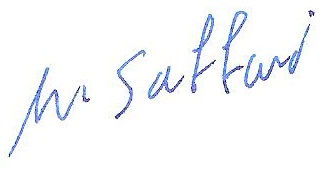 M. Saffari